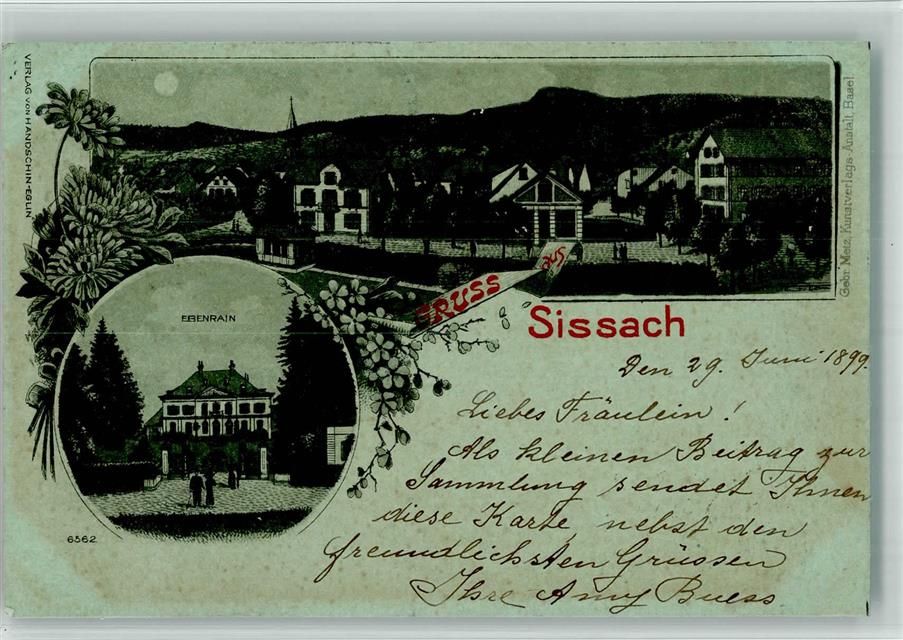 VERLAG VON HANDSCHIN-EGLIN
Gebr. Metz, Kunstverlags-Anstalt, Basel.
GRUSS aus
Sissach
EBENRAIN
6562
Den 29. Juni 1899.
Liebes Fräulein!
Als kleinen Beitrag zur
Sammlung sendet Ihnen
diese Karte nebst den
freundlichsten Grüssen
Ihre Amy Buess